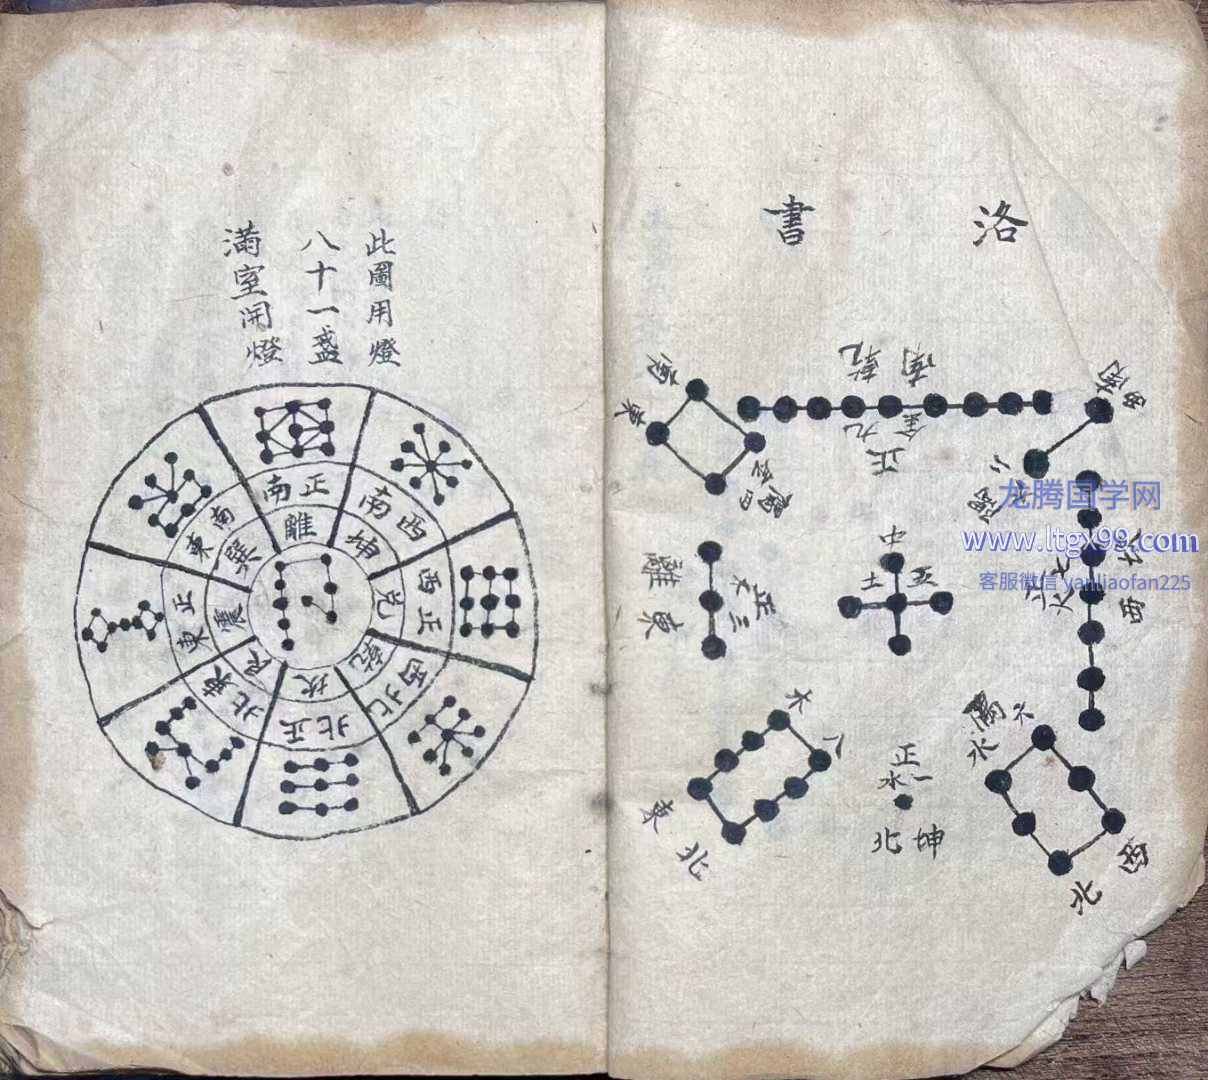 洛書
南乾
正
金九
西南
隅
南
東
隅
四
中
土五
正三
木
離東
七
火
西坎
正
水一
坤北
隅
六
水
西北
木
八
東北
此圖用燈
八十一盞
滿室開燈
正南
西南
正西
西北
正北
東北
正東
南東
離
坤
兌
乾
坎
艮
震
巽
龙腾国学网
www.ltgx99.com
客服微信 yanliaofan225